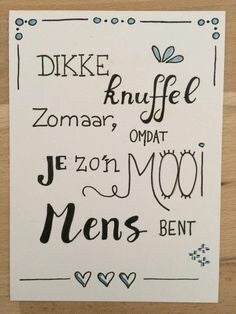 DIKKE
knuffel
Zomaar, OMDAT
JE zo'n MOOI
Mens BENT